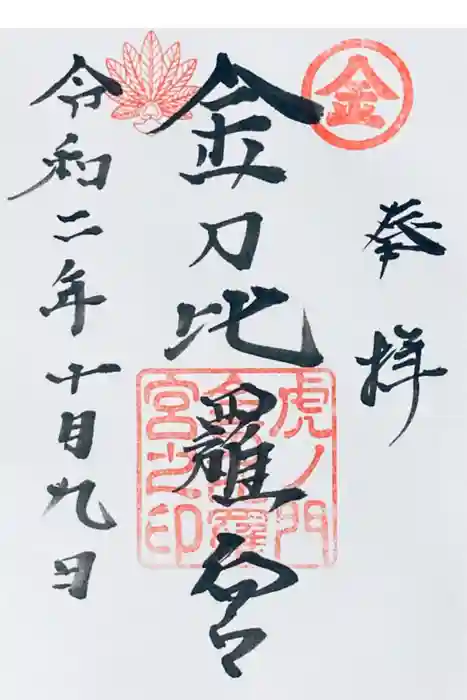 奉拝
金
金刀比羅宮
虎ノ門
金刀比羅
宮之印
令和二年十月九日